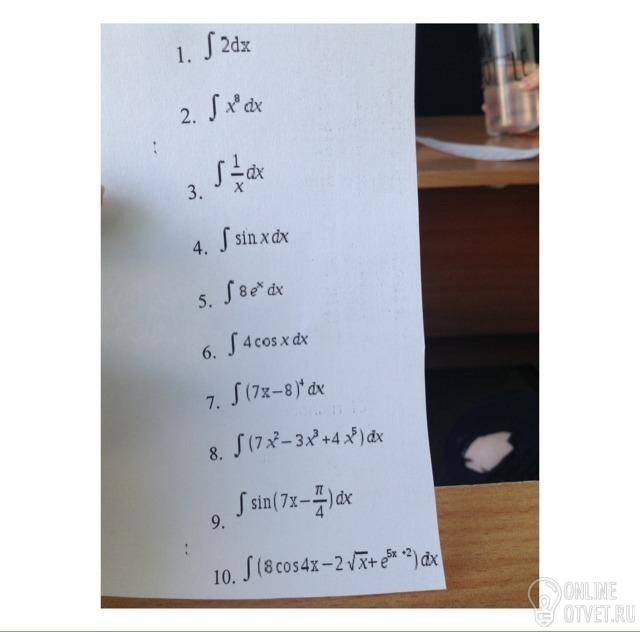 1. ∫ 2dx
2. ∫ x⁸ dx
3. ∫ 1/x dx
4. ∫ sin x dx
5. ∫ 8 eˣ dx
6. ∫ 4 cos x dx
7. ∫ (7x−8)⁴ dx
8. ∫ (7x²−3x³+4x⁵) dx
9. ∫ sin(7x−π/4) dx
10. ∫ (8 cos 4x−2√x+e⁵ˣ⁺²) dx
ONLINE
OTVET.RU